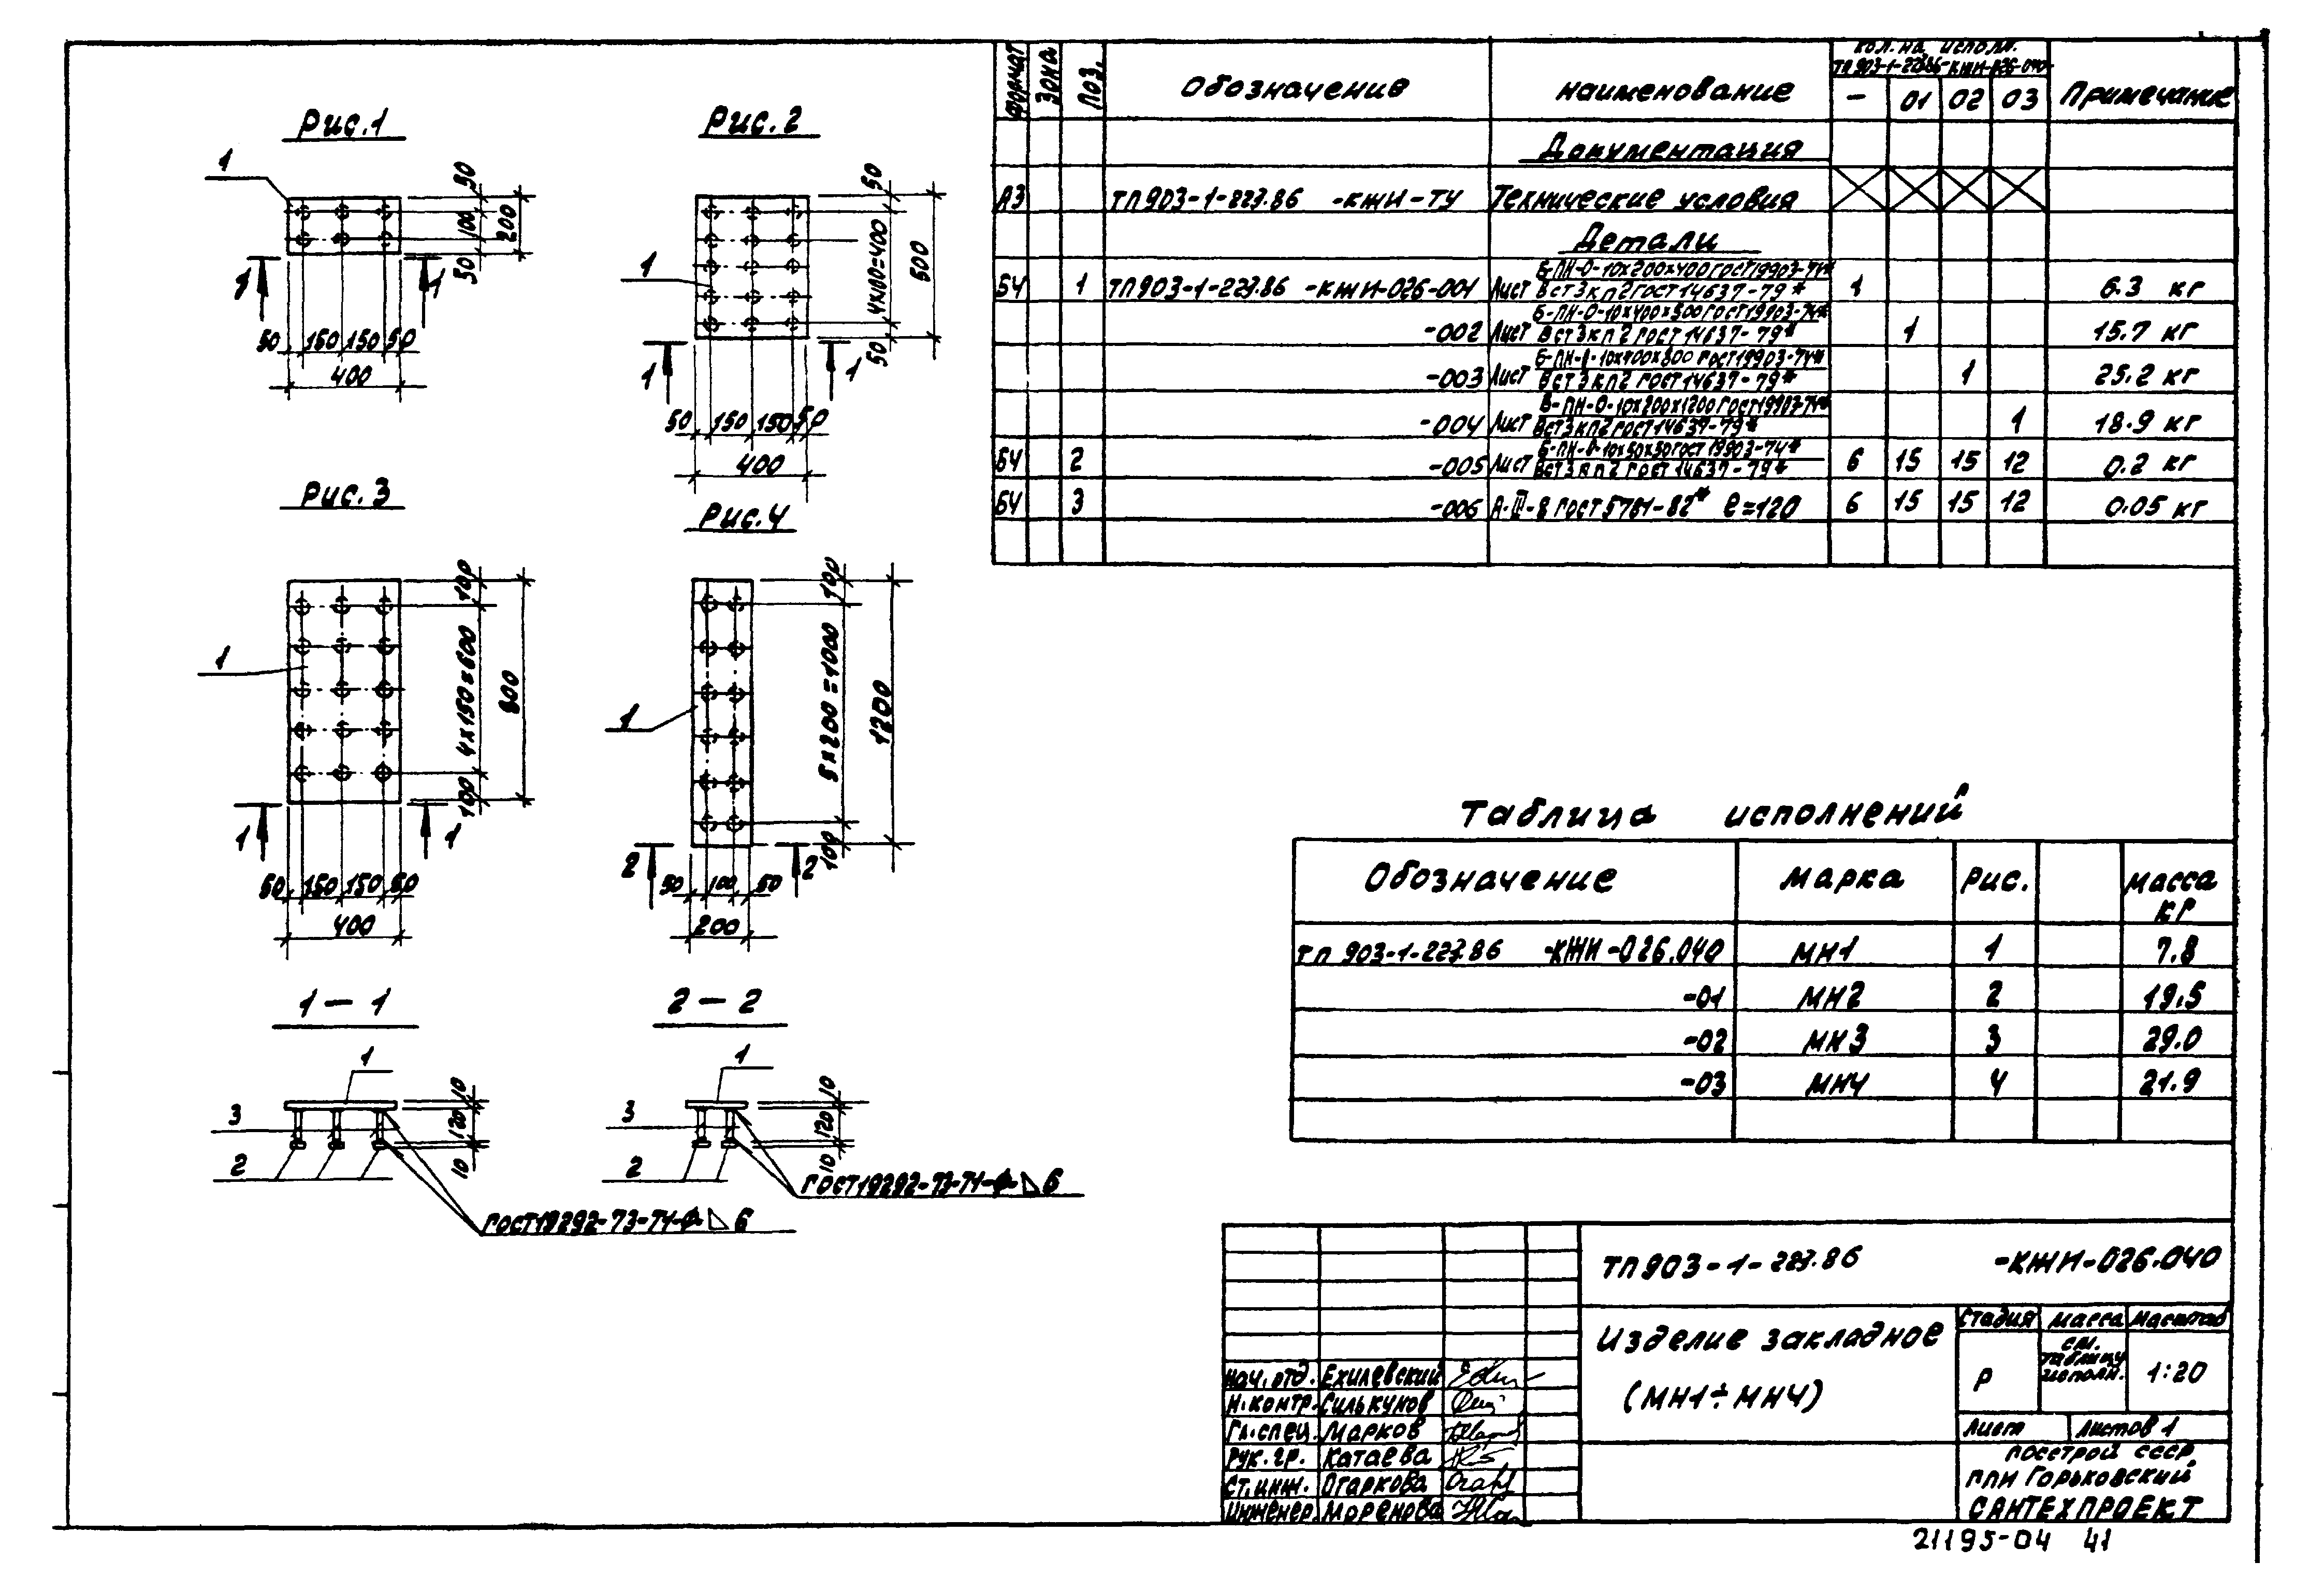 Рис.1
1
50
100
200
50
1
1
50 150 150 50
400
Рис.2
1
50
4х100=400
500
50
1
1
50 150 150 50
400
Рис.3
1
100
4х150=600
800
100
1
1
50 150 150 50
400
Рис.4
1
100
5х200=1000
1200
100
2
2
50 100 50
200
1-1
1
10
3
120
2
10
ГОСТ19292-73-Т1-Ф-◺6
2-2
1
10
3
120
2
10
ГОСТ19292-73-Т1-Ф-◺6
Формат Зона Поз. Обозначение Наименование Кол. на исполн. Примечание
ТП903-1-227.86-КЖИ-026-040-
- 01 02 03
Документация
А3 ТП903-1-227.86 -КЖИ-ТУ Технические условия
Детали
БЧ 1 ТП903-1-227.86 -КЖИ-026-001 Лист Б-ПН-О-10х200х400 ГОСТ19903-74* 1 6.3 кг
ВСт3кп2 ГОСТ14637-79*
-002 Лист Б-ПН-О-10х400х500 ГОСТ19903-74* 1 15.7 кг
ВСт3кп2 ГОСТ14637-79*
-003 Лист Б-ПН-О-10х400х800 ГОСТ19903-74* 1 25.2 кг
ВСт3кп2 ГОСТ14637-79*
-004 Лист Б-ПН-О-10х200х1200 ГОСТ19903-74* 1 18.9 кг
ВСт3кп2 ГОСТ14637-79*
БЧ 2 -005 Лист Б-ПН-О-10х50х50 ГОСТ19903-74* 6 15 15 12 0.2 кг
ВСт3кп2 ГОСТ14637-79*
БЧ 3 -006 А-III-8 ГОСТ5781-82* ℓ=120 6 15 15 12 0.05 кг
Таблица исполнений
Обозначение Марка Рис. Масса
кг
ТП 903-1-227.86 -КЖИ-026.040 МН1 1 7.8
-01 МН2 2 19.5
-02 МН3 3 29.0
-03 МН4 4 21.9
ТП903-1-227.86 -КЖИ-026.040
Изделие закладное
(МН1÷МН4)
Стадия Масса Масштаб
Р см. таблицу исполн. 1:20
Лист Листов 1
Госстрой СССР
ППИ Горьковский
САНТЕХПРОЕКТ
Нач.отд. Ехилевский
Н.контр. Силькунов
Гл.спец. Марков
Рук.гр. Катаева
Ст.инж. Огаркова
Инженер Моренова
21195-04 41